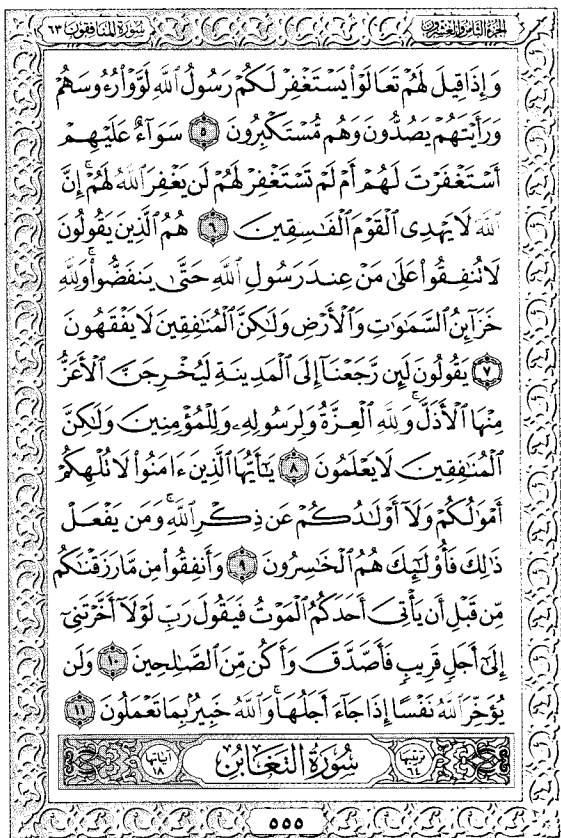 الجزء الثامن والعشرون سورة المنافقون ٦٣
وَإِذَا قِيلَ لَهُمْ تَعَالَوْا۟ يَسْتَغْفِرْ لَكُمْ رَسُولُ ٱللَّهِ لَوَّوْا۟ رُءُوسَهُمْ
وَرَأَيْتَهُمْ يَصُدُّونَ وَهُم مُّسْتَكْبِرُونَ ٥ سَوَآءٌ عَلَيْهِمْ
أَسْتَغْفَرْتَ لَهُمْ أَمْ لَمْ تَسْتَغْفِرْ لَهُمْ لَن يَغْفِرَ ٱللَّهُ لَهُمْ ۚ إِنَّ
ٱللَّهَ لَا يَهْدِى ٱلْقَوْمَ ٱلْفَـٰسِقِينَ ٦ هُمُ ٱلَّذِينَ يَقُولُونَ
لَا تُنفِقُوا۟ عَلَىٰ مَنْ عِندَ رَسُولِ ٱللَّهِ حَتَّىٰ يَنفَضُّوا۟ ۗ وَلِلَّهِ
خَزَآئِنُ ٱلسَّمَـٰوَٰتِ وَٱلْأَرْضِ وَلَـٰكِنَّ ٱلْمُنَـٰفِقِينَ لَا يَفْقَهُونَ
٧ يَقُولُونَ لَئِن رَّجَعْنَآ إِلَى ٱلْمَدِينَةِ لَيُخْرِجَنَّ ٱلْأَعَزُّ
مِنْهَا ٱلْأَذَلَّ ۚ وَلِلَّهِ ٱلْعِزَّةُ وَلِرَسُولِهِۦ وَلِلْمُؤْمِنِينَ وَلَـٰكِنَّ
ٱلْمُنَـٰفِقِينَ لَا يَعْلَمُونَ ٨ يَـٰٓأَيُّهَا ٱلَّذِينَ ءَامَنُوا۟ لَا تُلْهِكُمْ
أَمْوَٰلُكُمْ وَلَآ أَوْلَـٰدُكُمْ عَن ذِكْرِ ٱللَّهِ ۚ وَمَن يَفْعَلْ
ذَٰلِكَ فَأُو۟لَـٰٓئِكَ هُمُ ٱلْخَـٰسِرُونَ ٩ وَأَنفِقُوا۟ مِن مَّا رَزَقْنَـٰكُم
مِّن قَبْلِ أَن يَأْتِىَ أَحَدَكُمُ ٱلْمَوْتُ فَيَقُولَ رَبِّ لَوْلَآ أَخَّرْتَنِىٓ
إِلَىٰٓ أَجَلٍ قَرِيبٍ فَأَصَّدَّقَ وَأَكُن مِّنَ ٱلصَّـٰلِحِينَ ١٠ وَلَن
يُؤَخِّرَ ٱللَّهُ نَفْسًا إِذَا جَآءَ أَجَلُهَا ۚ وَٱللَّهُ خَبِيرٌۢ بِمَا تَعْمَلُونَ ١١
ترتيبها ٦٤ سورة التغابن آياتها ١٨
٥٥٥